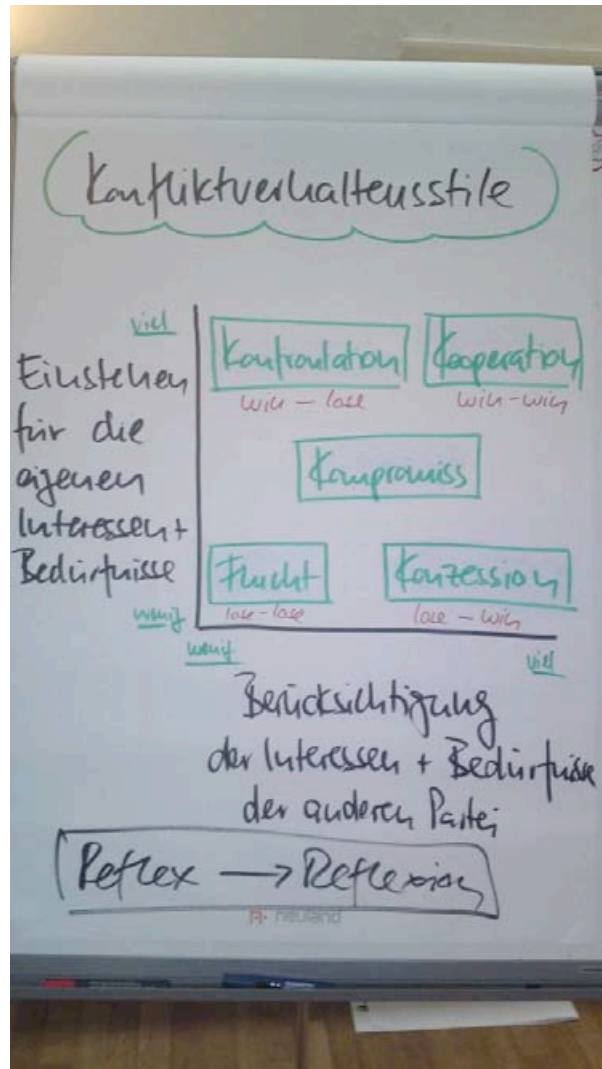 Konfliktverhaltensstile
viel
Einstehen
für die
eigenen
Interessen +
Bedürfnisse
wenig
Konfrontation
win – lose
Kooperation
win-win
Kompromiss
Flucht
lose-lose
Konzession
lose – win
wenig
viel
Berücksichtigung
der Interessen + Bedürfnisse
der anderen Partei
Reflex → Reflexion
neuland